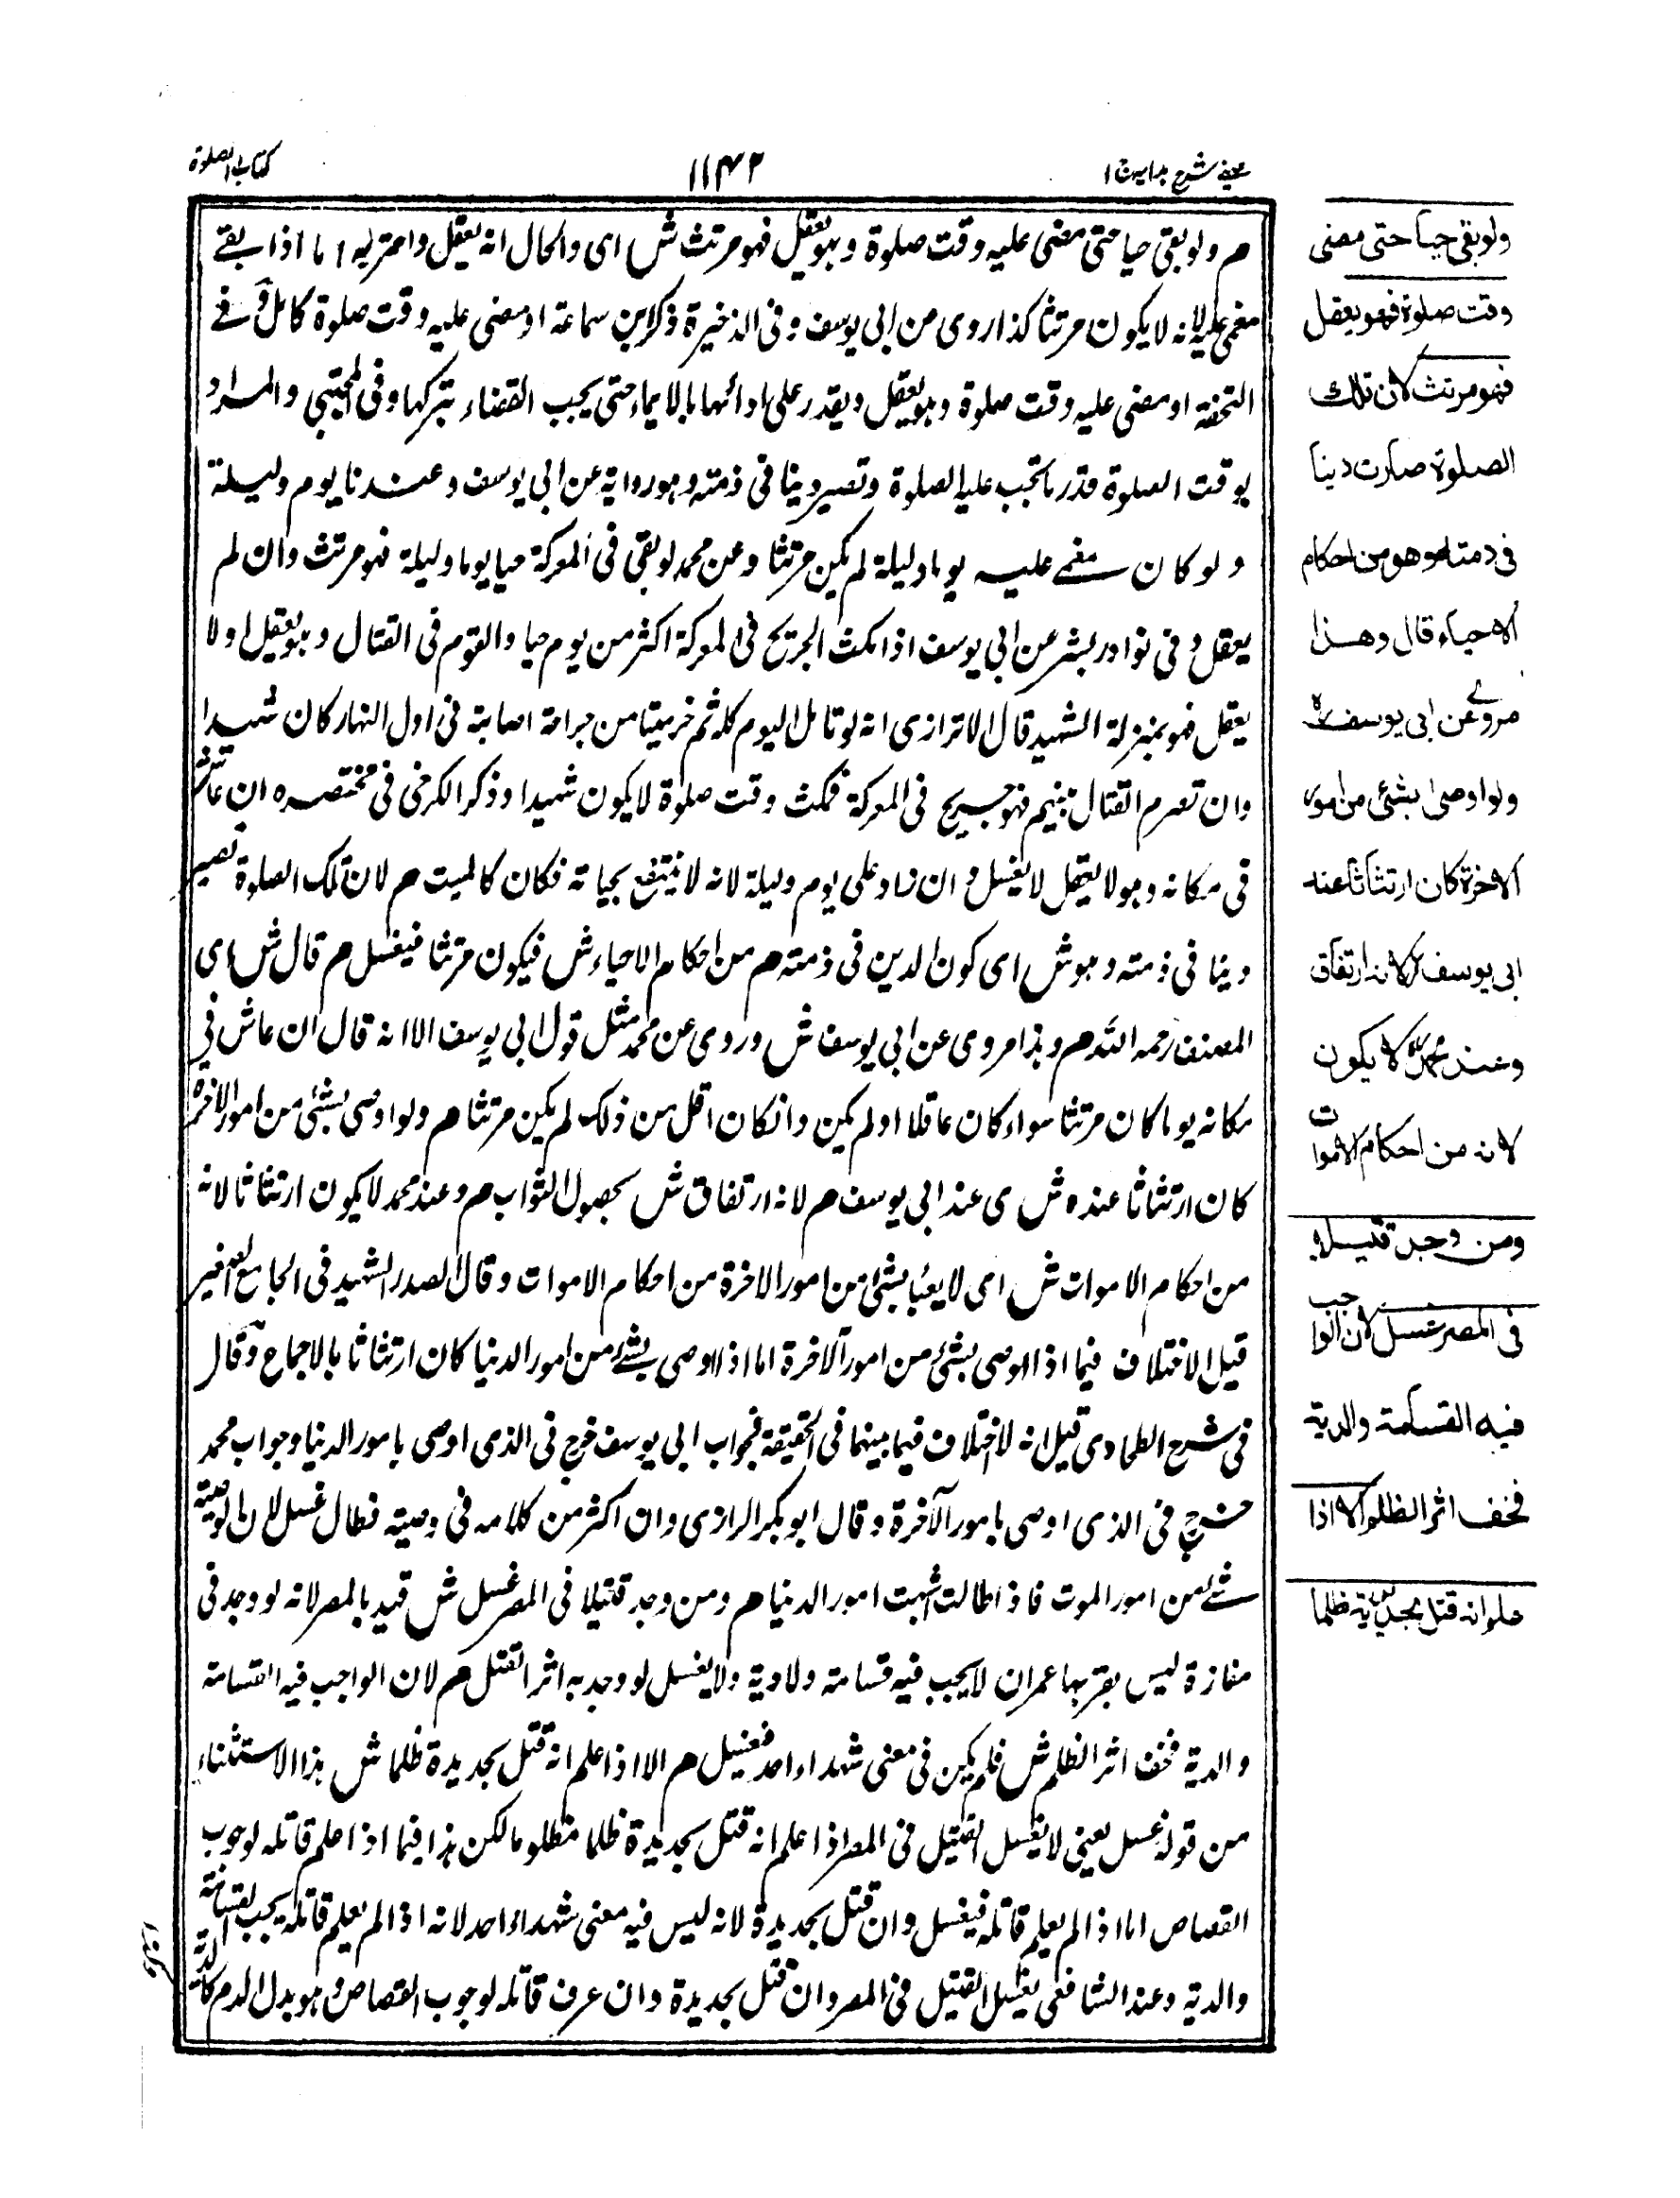 عینی شرح ہدایۃ ج ۱
۱۱۴۲
کتاب الصلوۃ
م ولو بقی حیا حتی مضی علیہ وقت صلوۃ وہو یعقل فہو مرتث ش ای والحال انہ یعقل واحترز بہ اما اذا بقے
مغمی علیہ لانہ لا یکون مرتثا کذا روی من ابی یوسف وفی الذخیرۃ ذکر ابن سماعۃ او مضی علیہ وقت صلوۃ کامل وفے
التحفۃ او مضی علیہ وقت صلوۃ وہو یعقل ویقدر علی ادائہا بالایماء حتی یجب القضاء بترکہا وفی المجتبی والمراد
بوقت الصلوۃ قدر ما تجب علیہ الصلوۃ وتصیر دینا فی ذمتہ وہو روایۃ عن ابی یوسف وعندنا یوم ولیلۃ
ولو کان مغمے علیہ یوما ولیلۃ لم یکن مرتثا وعن محمد لو بقی فی المعرکۃ حیا یوما ولیلۃ فہو مرتث وان لم
یعقل وفی نوادر بشر عن ابی یوسف اذا مکث الجریح فی المعرکۃ اکثر من یوم حیا والقوم فی القتال وہو یعقل او لا
یعقل فہو بمنزلۃ الشہید قال الاترازی انہ لو قاتل الیوم کلہ ثم خر میتا من جراحۃ اصابتہ فی اول النہار کان شہیدا
وان تصرم القتال بینہم فہو جریح فی المعرکۃ فمکث وقت صلوۃ لا یکون شہیدا وذکر الکرخی فی مختصرہ ان عاش
فی مکانہ وہو لا یعقل لا یغسل وان زاد علی یوم ولیلۃ لانہ لا ینتفع بحیاتہ فکان کالمیت م لان تلک الصلوۃ تصیر
دینا فی ذمتہ وہو ش ای کون الدین فی ذمتہ م من احکام الاحیاء ش فیکون مرتثا فیغسل م قال ش ای
المصنف رحمہ اللہ م وہذا مروی عن ابی یوسف ش وروی عن محمد مثل قول ابی یوسف الا انہ قال ان عاش فی
مکانہ یوما کان مرتثا سواء کان عاقلا او لم یکن وانکان اقل من ذلک لم یکن مرتثا م ولو اوصی بشئ من امور الاخرۃ
کان ارتثاثا عندہ ش ی عند ابی یوسف م لانہ ارتفاق ش بحصول الثواب م وعند محمد لا یکون ارتثاثا لانہ
من احکام الاموات ش ای لا یعبأ بشئ من امور الاخرۃ من احکام الاموات وقال الصدر الشہید فی الجامع الصغیر
قیل الاختلاف فیما اذا اوصی بشئ من امور الآخرۃ اما اذا اوصی بشئ من امور الدنیا کان ارتثاثا بالاجماع وقال
فی شرح الطحاوی قیل انہ لا اختلاف فیما بینہما فی الحقیقۃ فجواب ابی یوسف خرج فی الذی اوصی بامور الدنیا وجواب محمد
خرج فی الذی اوصی بامور الآخرۃ وقال ابو بکر الرازی وان اکثر من کلامہ فی وصیتہ فطال غسل لان الوصیۃ
شئ من امور الموت فاذا طالت اشبہت امور الدنیا م ومن وجد قتیلا فی المصر غسل ش قید بالمصر لانہ لو وجد فی
مفازۃ لیس بقربہا عمران لا یجب فیہ قسامۃ ولا دیۃ ولا یغسل لو وجد بہ اثر القتل م لان الواجب فیہ القسامۃ
والدیۃ فخف اثر الظلم ش فلم یکن فی معنی شہداء احد فغسیل م الا اذا علم انہ قتل بحدیدۃ ظلما ش ہذا الاستثناء
من قولہ غسل یعنی لا یغسل القتیل فی المصر اذا علم انہ قتل بحدیدۃ ظلما مظلوما لکن ہذا فیما اذا علم قاتلہ لوجوب
القصاص اما اذا لم یعلم قاتلہ فیغسل وان قتل بحدیدۃ لانہ لیس فیہ معنی شہداء احد لانہ اذا لم یعلم قاتلہ یجب القسامۃ
والدیۃ وعند الشافعی یغسل القتیل فی المصر وان قتل بحدیدۃ وان عرف قاتلہ لوجوب القصاص وہو بدل الدم کالدیۃ
ولو بقی حیا حتی مضی
وقت صلوۃ فھو یعقل
فھو مرتث لان تلك
الصلوۃ صارت دینا
فی ذمتہ وھو من احکام
الاحیاء قال وھذا
مروی عن ابی یوسف رح
ولو اوصی بشئ من امور
الاخرۃ کان ارتثاثا عند
ابی یوسف رح لانہ ارتفاق
وعند محمد رح لا یکون
لانہ من احکام الاموات
ومن وجد قتیلا
فی المصر غسل لان الواجب
فیہ القسامۃ والدیۃ
فخف اثر الظلم الا اذا
علم انہ قتل بحدیدۃ ظلما